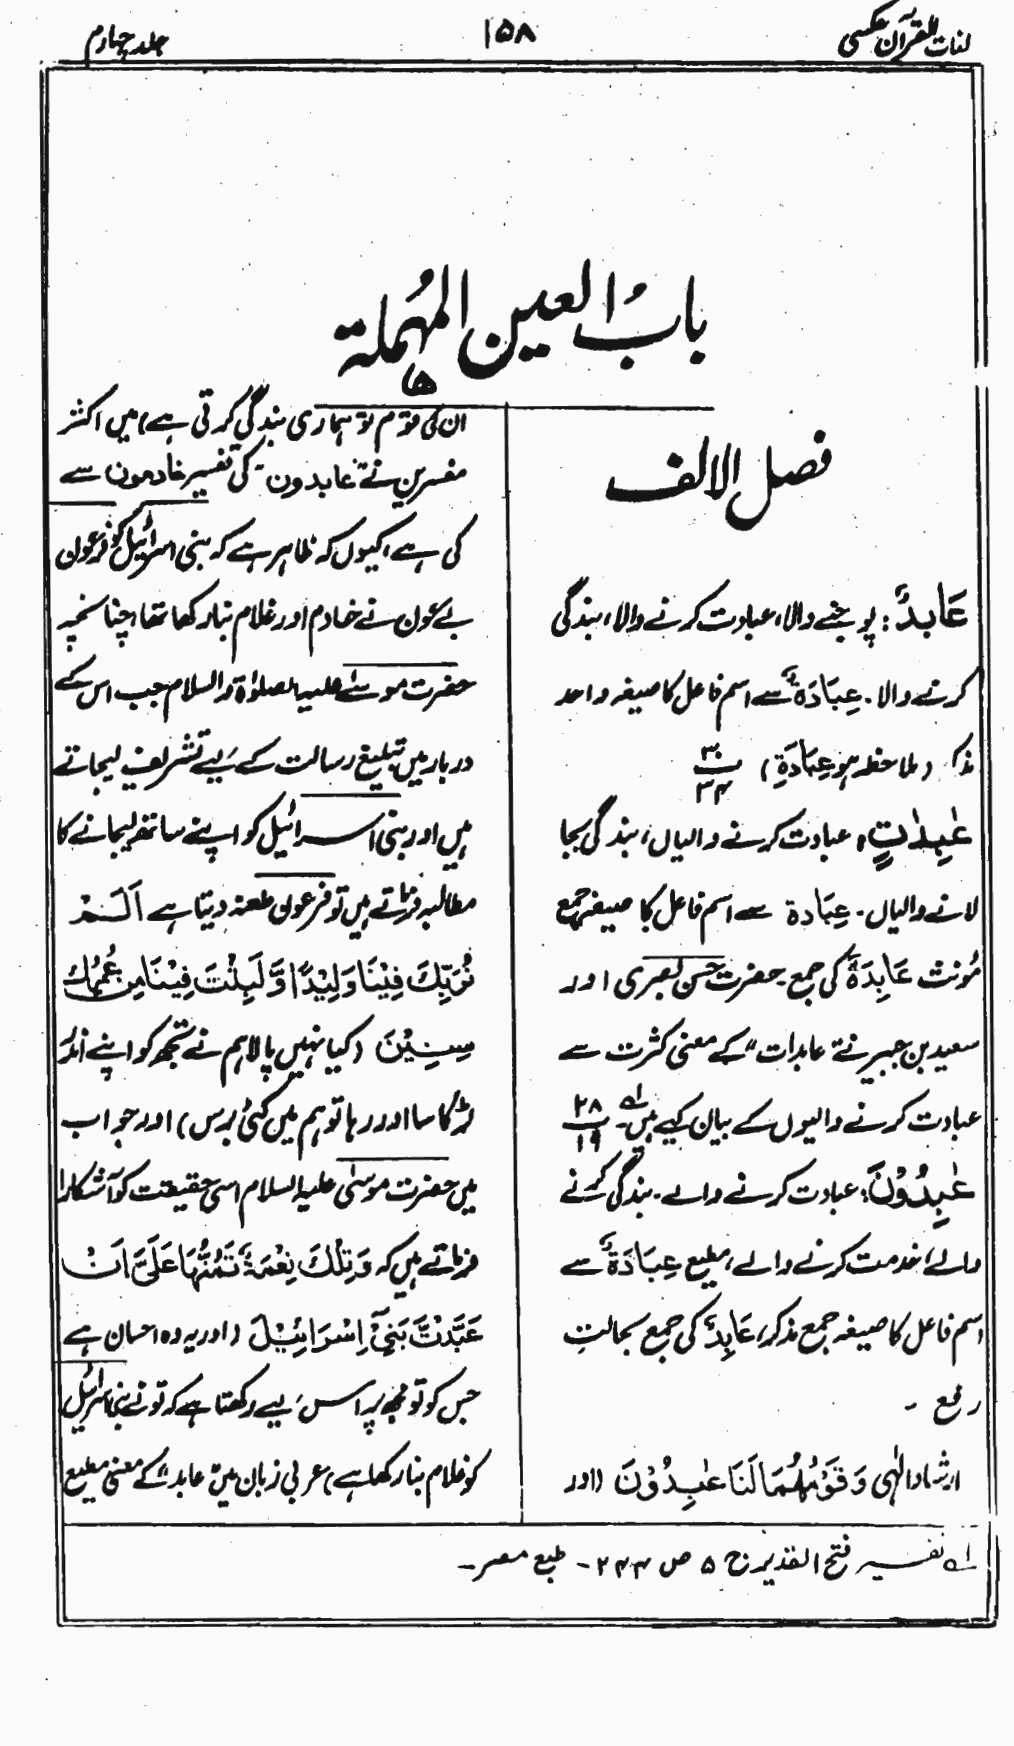 لغات القرآن عکسی
۱۵۸
جلد چہارم
بابُ العین المُہملة
فصل الالف
عَابِدٌ: پوجنے والا، عبادت کرنے والا، بندگی
کرنے والا۔ عِبَادَةٌ سے اسم فاعل کا صیغہ واحد
مذکر (ملاحظہ ہو عِبَادَةِ) ۳۰/۳۴
عٰبِدٰتٍ: عبادت کرنے والیاں، بندگی بجا
لانے والیاں۔ عِبَادة سے اسم فاعل کا صیغہ جمع
مُونث عَابِدَةٌ کی جمع۔ حضرت حسن بصری اور
سعید بن جبیر نے "عابدات" کے معنی کثرت سے
عبادت کرنے والیوں کے بیان کیے ہیں۔ لہ ۲۸/۱۹
عٰبِدُوْنَ: عبادت کرنے والے۔ بندگی کرنے
والے، خدمت کرنے والے، مطیع عِبَادَةٌ سے
اسم فاعل کا صیغہ جمع مذکر، عَابِدٌ کی جمع بحالتِ
رفع ۔
ارشاد الٰہی وَقَوْمُهُمَا لَنَا عٰبِدُوْنَ (اور
ان کی قوم تو ہماری بندگی کرتی ہے) میں اکثر
مفسرین نے "عابدون" کی تفسیر خادمون سے
کی ہے، کیوں کہ ظاہر ہے کہ بنی اسرائیل کو فرعون
بے عون نے خادم اور غلام بنا رکھا تھا، چنانچہ
حضرت موسیٰ علیہ الصلوٰۃ والسلام جب اس کے
دربار میں تبلیغ رسالت کے لیے تشریف لیجاتے
ہیں اور بنی اسرائیل کو اپنے ساتھ لیجانے کا
مطالبہ فرماتے ہیں تو فرعون طعنہ دیتا ہے اَلَمْ
نُرَبِّكَ فِيْنَا وَلِيْدًا وَّلَبِثْتَ فِيْنَا مِنْ عُمُرِكَ
سِنِيْنَ (کیا نہیں پالا ہم نے تجھ کو اپنے اندر
لڑکا سا اور رہا تو ہم میں کئی برس) اور جواب
میں حضرت موسیٰ علیہ السلام اسی حقیقت کو آشکارا
فرماتے ہیں کہ وَتِلْكَ نِعْمَةٌ تَمُنُّهَا عَلَیَّ اَنْ
عَبَّدْتَّ بَنِیْ اِسْرَائِيْلَ (اور یہ وہ احسان ہے
جس کو تو مجھ پر اس لیے رکھتا ہے کہ تو نے بنی اسرائیل
کو غلام بنا رکھا ہے) عربی زبان میں "عابد" کے معنی مطیع
لہ تفسیر فتح القدیر ج ۵ ص ۲۴۴ ۔ طبع مصر ۔